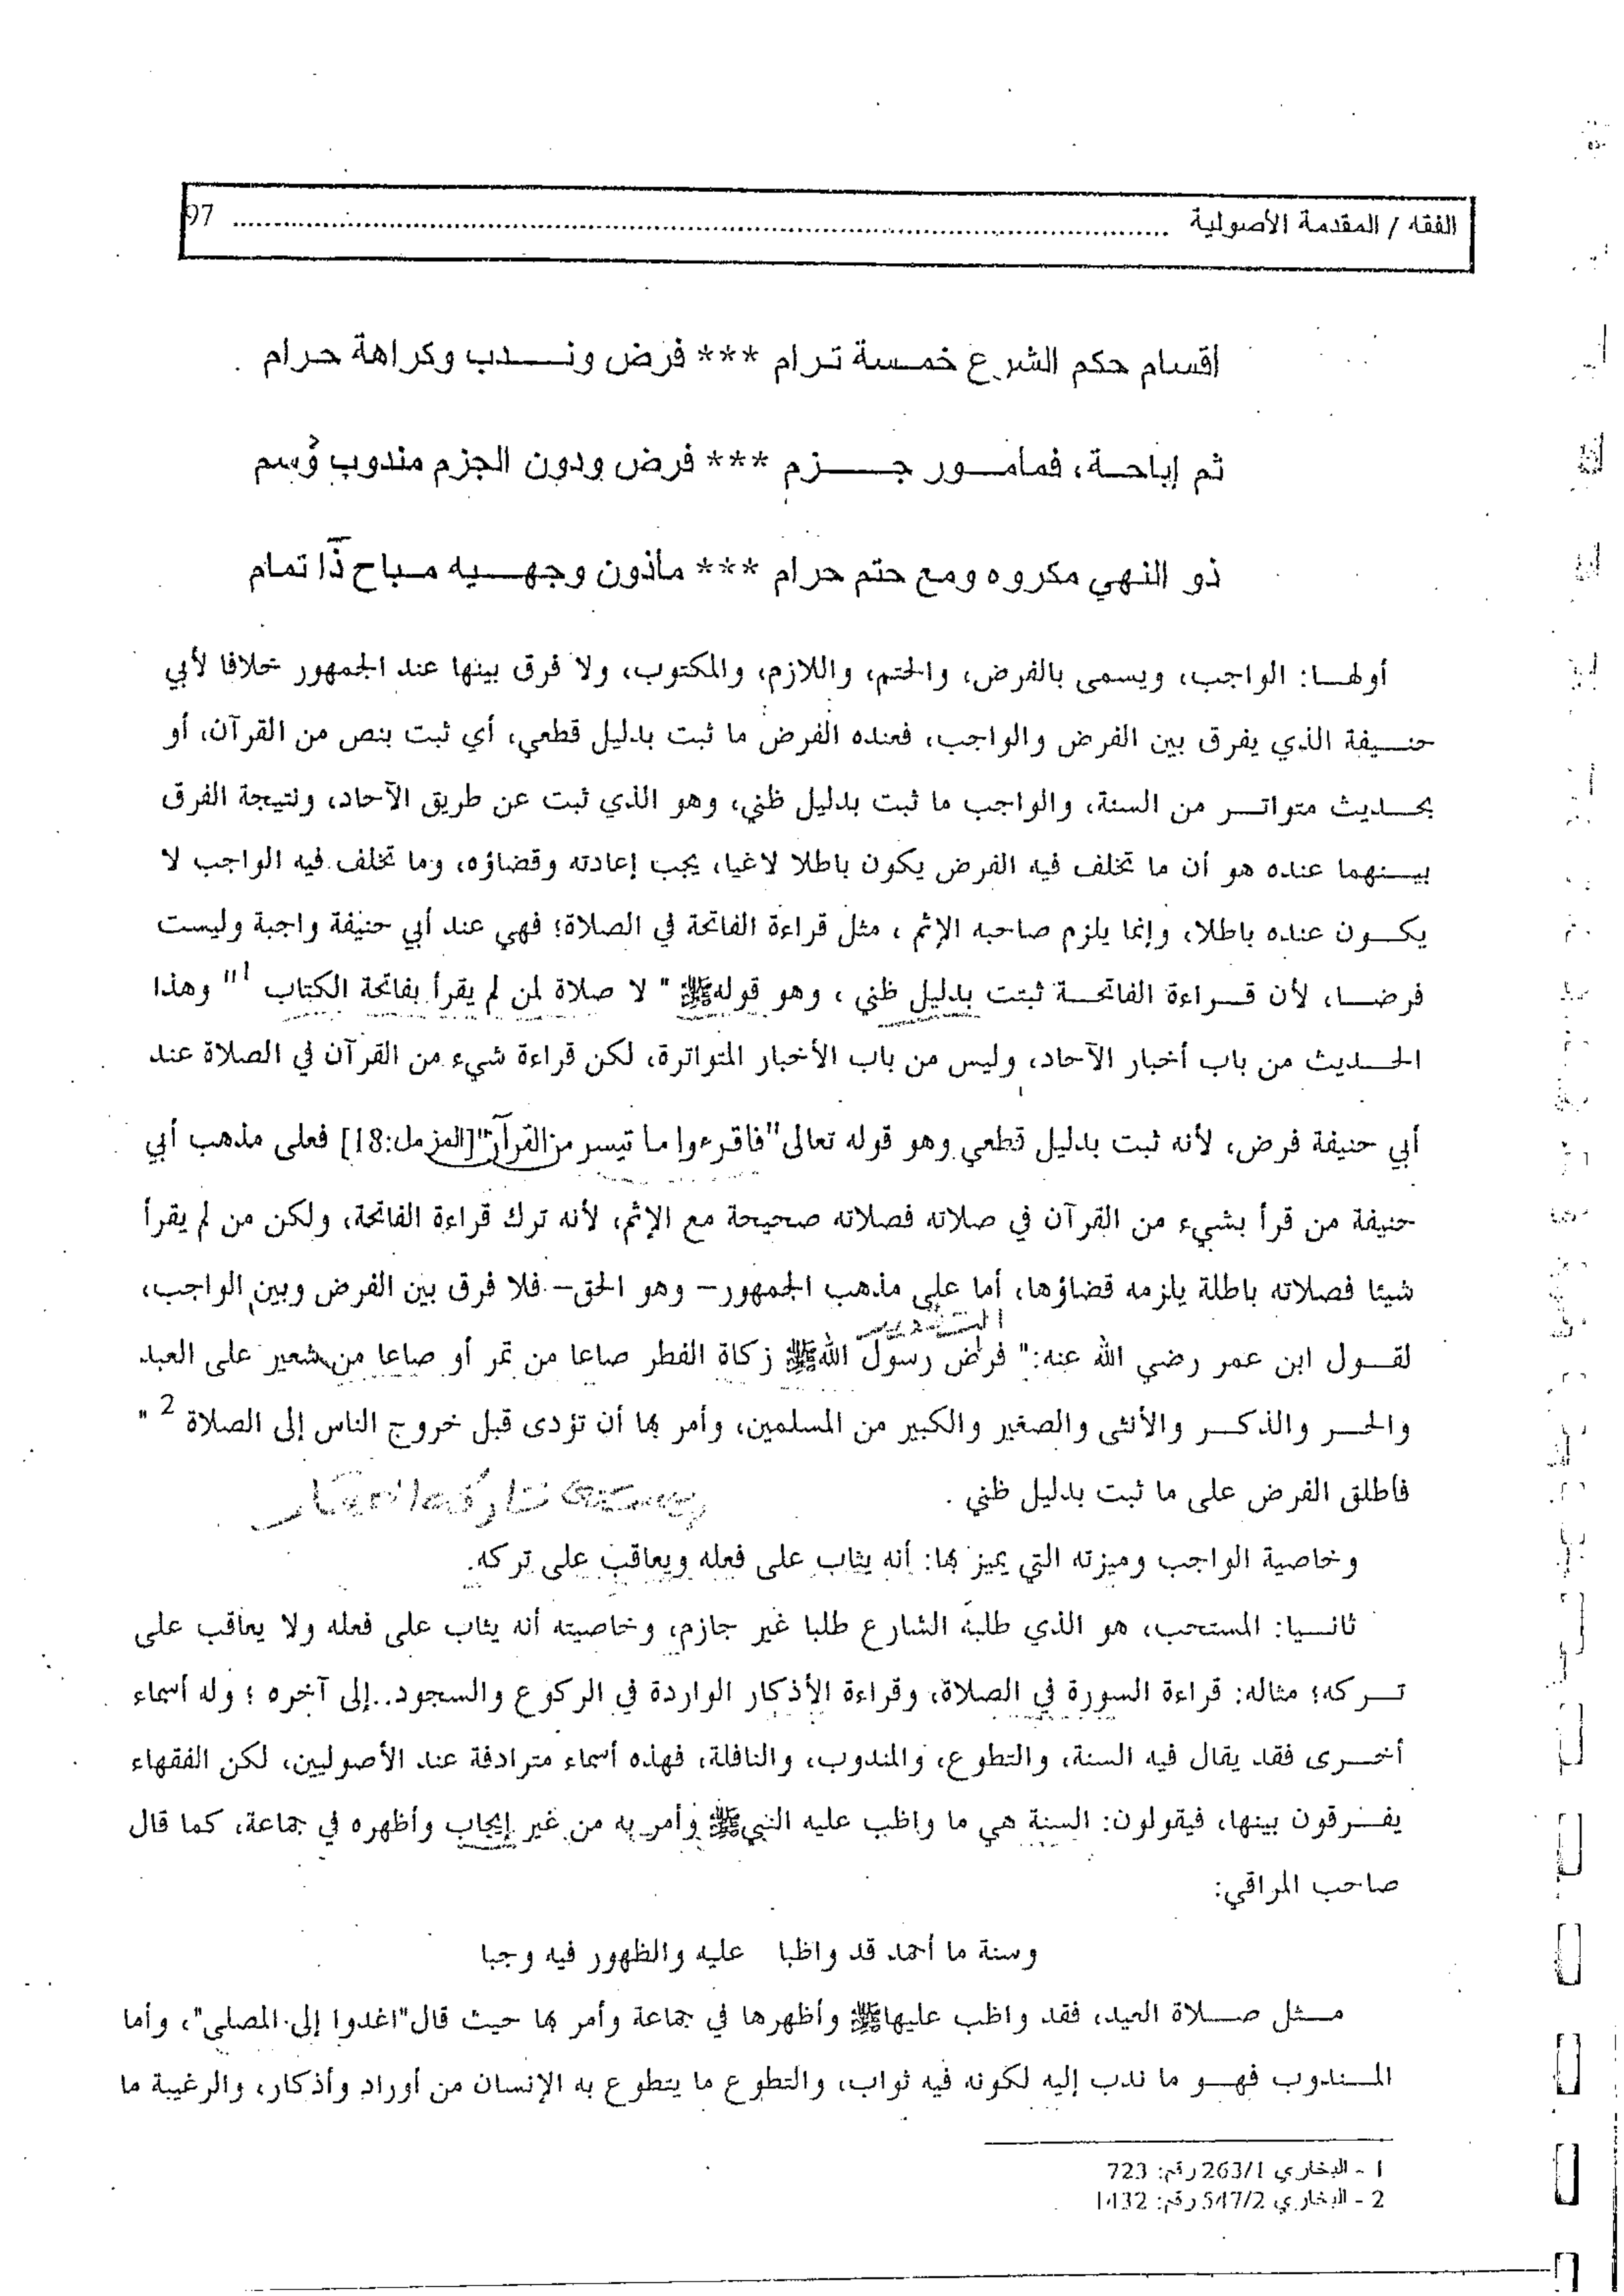 الفقه / المقدمة الأصولية ........................................ 97
أقسام حكم الشرع خمسة ترام *** فرض وندب وكراهة حرام
ثم إباحة، فمأمور جزم *** فرض ودون الجزم مندوب وُسم
ذو النهي مكروه ومع حتم حرام *** مأذون وجهيه مباح ذا تمام
أولها: الواجب، ويسمى بالفرض، والحتم، واللازم، والمكتوب، ولا فرق بينها عند الجمهور خلافا لأبي
حنيفة الذي يفرق بين الفرض والواجب، فعنده الفرض ما ثبت بدليل قطعي، أي ثبت بنص من القرآن، أو
بحديث متواتر من السنة، والواجب ما ثبت بدليل ظني، وهو الذي ثبت عن طريق الآحاد، ونتيجة الفرق
بينهما عنده هو أن ما تخلف فيه الفرض يكون باطلا لاغيا، يجب إعادته وقضاؤه، وما تخلف فيه الواجب لا
يكون عنده باطلا، وإنما يلزم صاحبه الإثم ، مثل قراءة الفاتحة في الصلاة؛ فهي عند أبي حنيفة واجبة وليست
فرضا، لأن قراءة الفاتحة ثبتت بدليل ظني ، وهو قوله ﷺ " لا صلاة لمن لم يقرأ بفاتحة الكتاب 1" وهذا
الحديث من باب أخبار الآحاد، وليس من باب الأخبار المتواترة، لكن قراءة شيء من القرآن في الصلاة عند
أبي حنيفة فرض، لأنه ثبت بدليل قطعي وهو قوله تعالى "فاقرءوا ما تيسر من القرآن" [المزمل:18] فعلى مذهب أبي
حنيفة من قرأ بشيء من القرآن في صلاته فصلاته صحيحة مع الإثم، لأنه ترك قراءة الفاتحة، ولكن من لم يقرأ
شيئا فصلاته باطلة يلزمه قضاؤها، أما على مذهب الجمهور – وهو الحق – فلا فرق بين الفرض وبين الواجب،
لقول ابن عمر رضي الله عنه:" فرض رسول الله ﷺ زكاة الفطر صاعا من تمر أو صاعا من شعير على العبد
والحر والذكر والأنثى والصغير والكبير من المسلمين، وأمر بها أن تؤدى قبل خروج الناس إلى الصلاة 2 "
فأطلق الفرض على ما ثبت بدليل ظني .
وخاصية الواجب وميزته التي يميز بها: أنه يثاب على فعله ويعاقب على تركه.
ثانيا: المستحب، هو الذي طلبه الشارع طلبا غير جازم، وخاصيته أنه يثاب على فعله ولا يعاقب على
تركه؛ مثاله: قراءة السورة في الصلاة، وقراءة الأذكار الواردة في الركوع والسجود..إلى آخره ؛ وله أسماء
أخرى فقد يقال فيه السنة، والتطوع، والمندوب، والنافلة، فهذه أسماء مترادفة عند الأصوليين، لكن الفقهاء
يفرقون بينها، فيقولون: السنة هي ما واظب عليه النبي ﷺ وأمر به من غير إيجاب وأظهره في جماعة، كما قال
صاحب المراقي:
وسنة ما أحمد قد واظبا عليه والظهور فيه وجبا
مثل صلاة العيد، فقد واظب عليها ﷺ وأظهرها في جماعة وأمر بها حيث قال"اغدوا إلى المصلى"، وأما
المندوب فهو ما ندب إليه لكونه فيه ثواب، والتطوع ما يتطوع به الإنسان من أوراد وأذكار، والرغيبة ما
1 - البخاري 263/1 رقم: 723
2 - البخاري 547/2 رقم: 1432